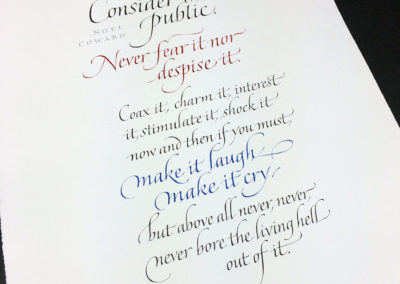 Consider
public.
NOEL
COWARD
Never fear it nor
despise it.
Coax it, charm it, interest
it, stimulate it, shock it
now and then if you must,
make it laugh,
make it cry,
but above all never, never,
never bore the living hell
out of it.